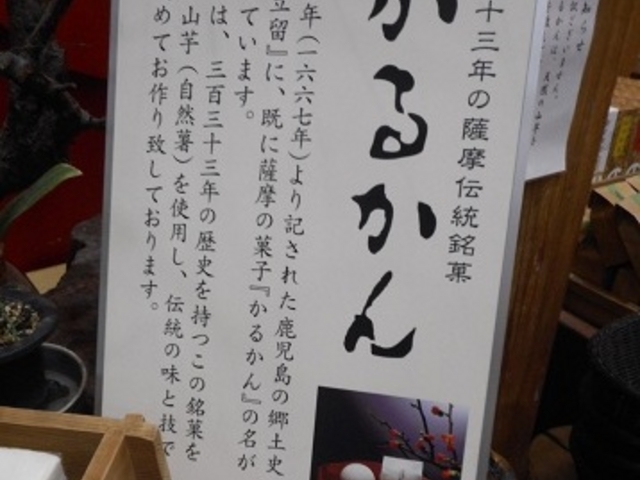 十三年の薩摩伝統銘菓
かるかん
年(一六六七年)より記された鹿児島の郷土史
立留』に、既に薩摩の菓子『かるかん』の名が
ています。
は、三百三十三年の歴史を持つこの銘菓を
山芋(自然薯)を使用し、伝統の味と技で
めてお作り致しております。